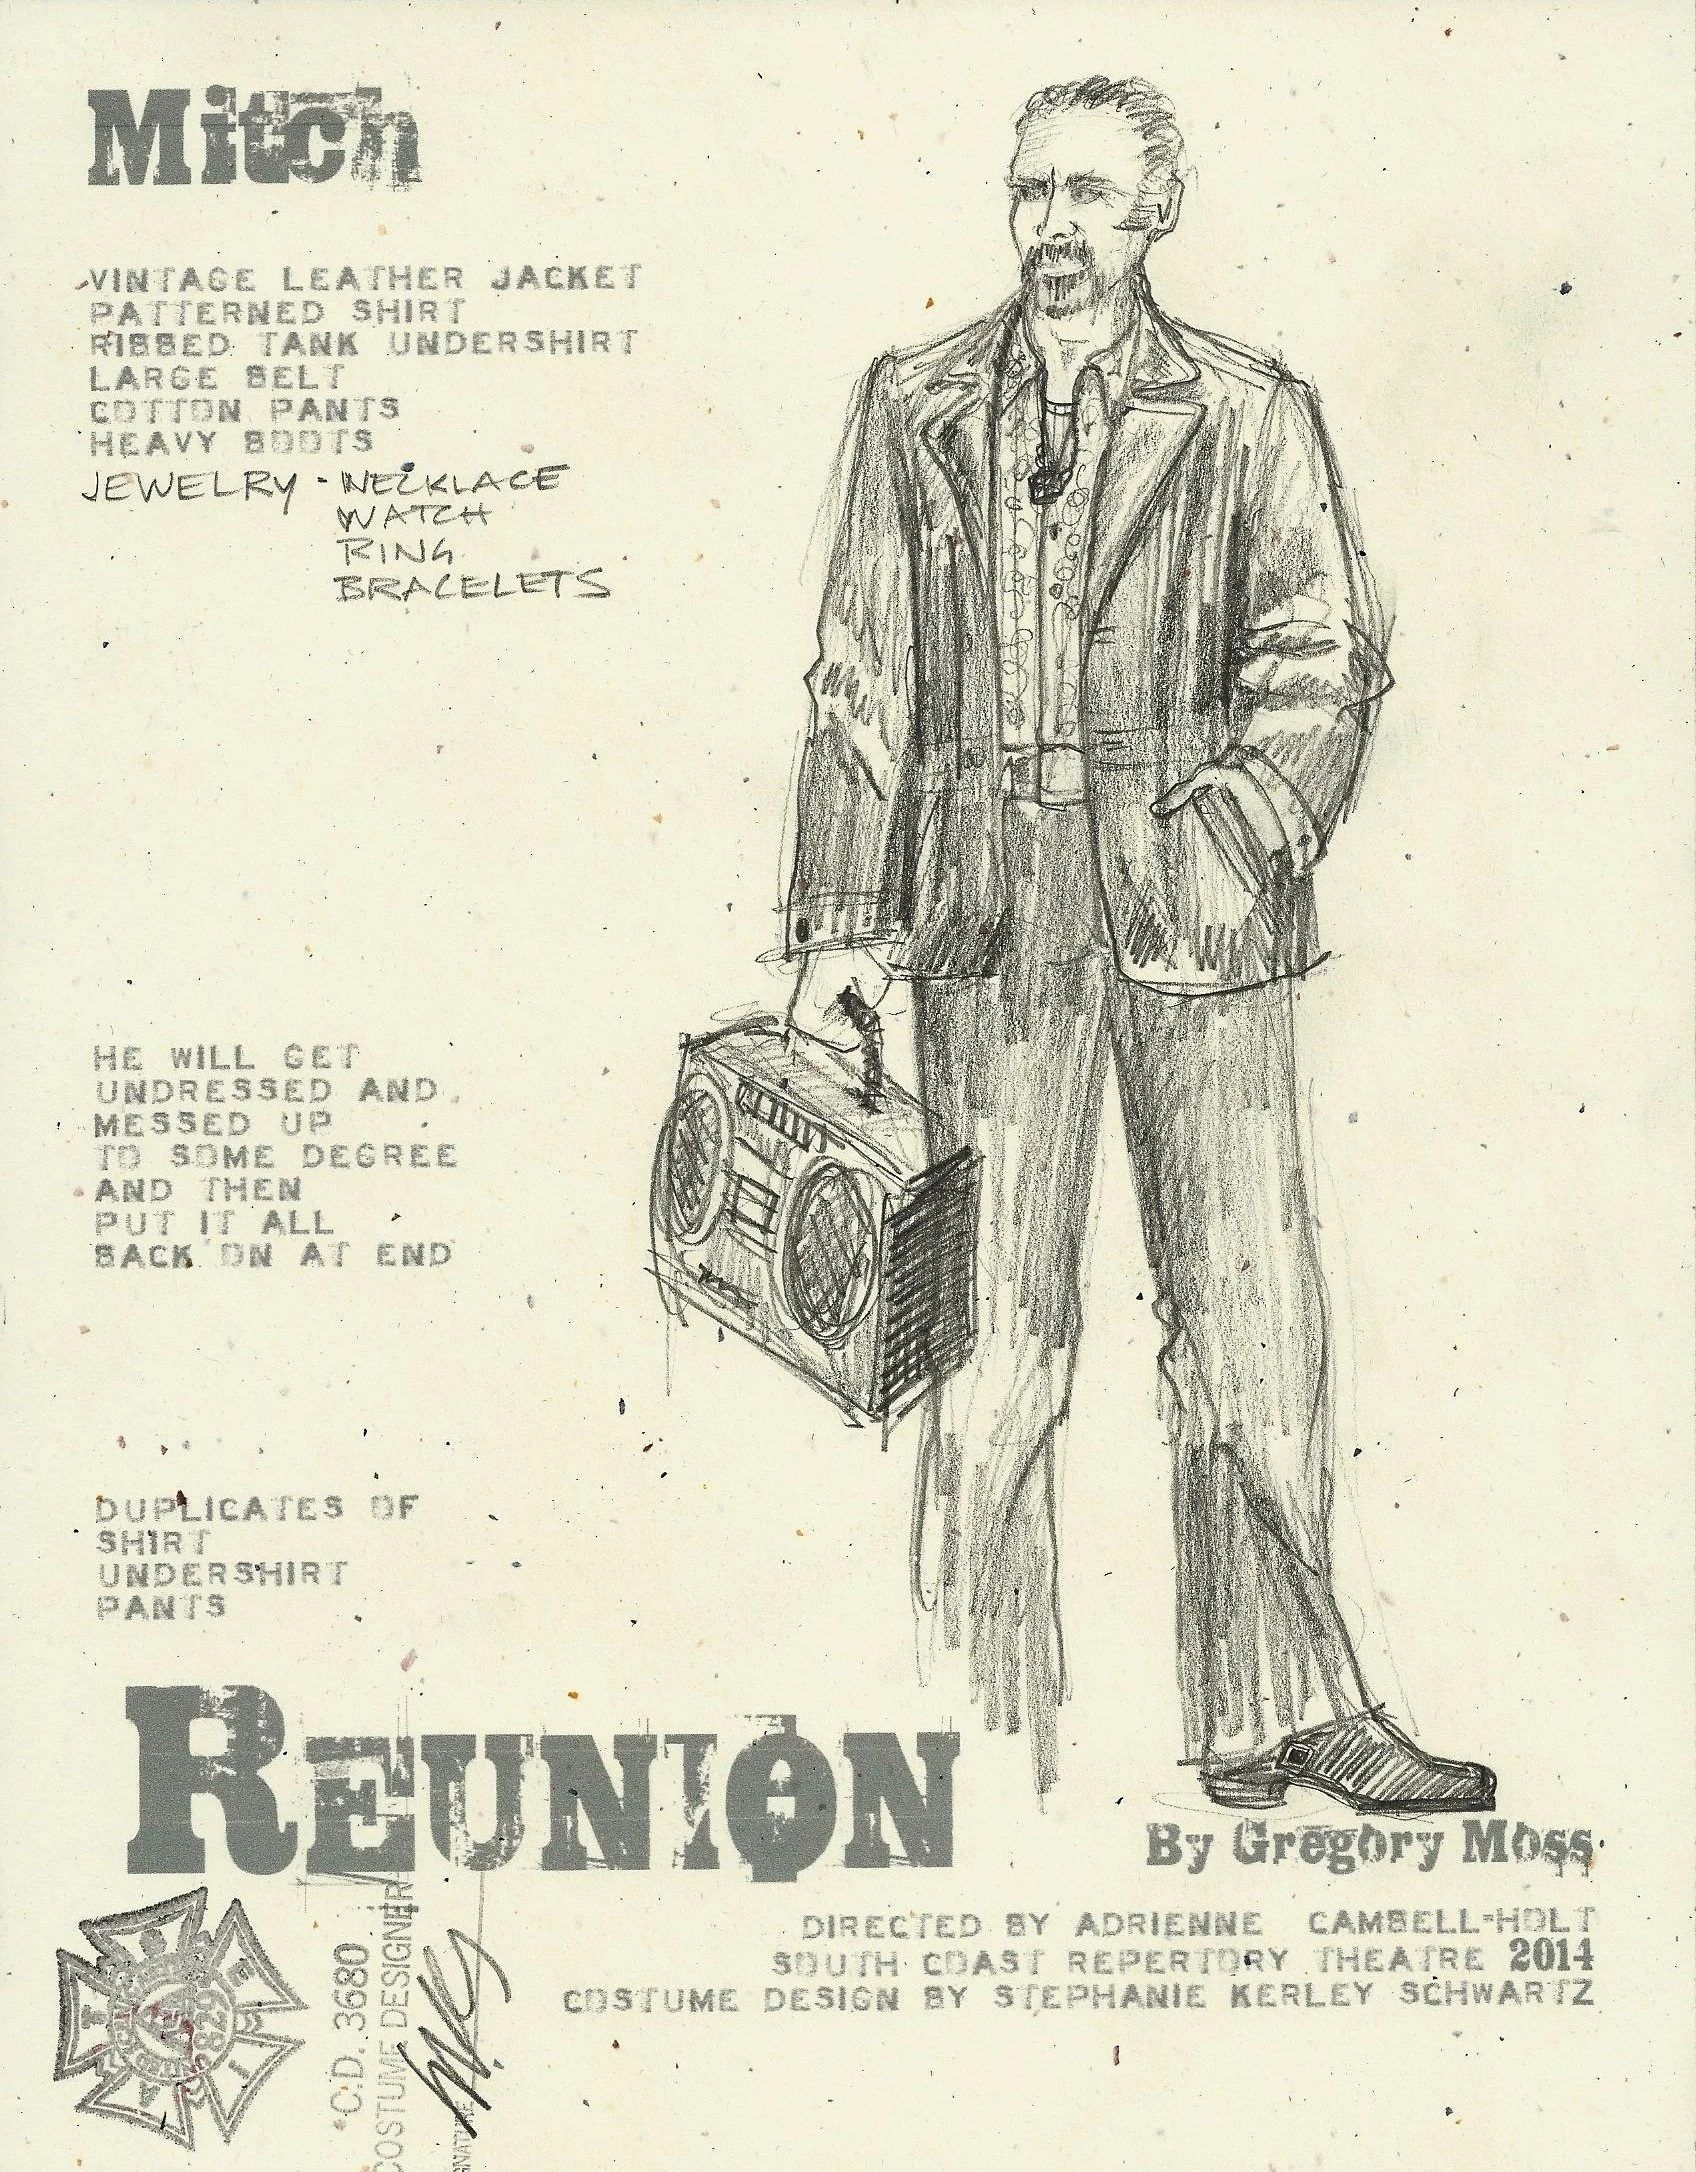 Mitch
VINTAGE LEATHER JACKET
PATTERNED SHIRT
RIBBED TANK UNDERSHIRT
LARGE BELT
COTTON PANTS
HEAVY BOOTS
JEWELRY - NECKLACE
WATCH
RING
BRACELETS
HE WILL GET
UNDRESSED AND
MESSED UP
TO SOME DEGREE
AND THEN
PUT IT ALL
BACK ON AT END
DUPLICATES OF
SHIRT
UNDERSHIRT
PANTS
REUNION
By Gregory Moss
DIRECTED BY ADRIENNE CAMBELL-HOLT
SOUTH COAST REPERTORY THEATRE 2014
COSTUME DESIGN BY STEPHANIE KERLEY SCHWARTZ
C.D. 3680
COSTUME DESIGNER
829